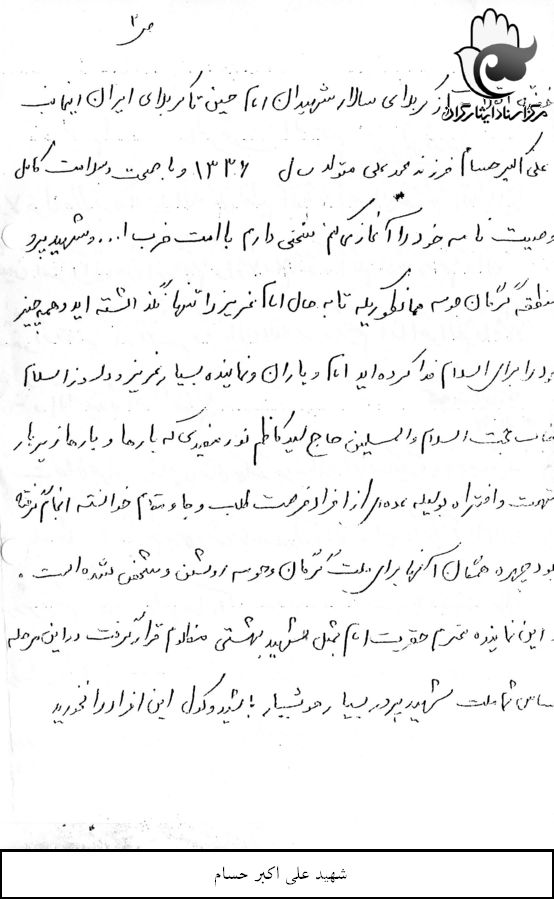 ص ۲
مرکز اسناد ایثارگران
از کربلای سالار شهیدان امام حسین تا کربلای ایران اینجانب
علی اکبر حسام فرزند محمد علی متولد سال ۱۳۳۶ و با صحت و سلامت کامل
وصیت نامه خود را آغاز می کنم سخنی دارم با امت حزب ا... و شهید پرور
منطقه گرگان تا به حال امام عزیز را تنها نگذاشته اید و همه چیز
خود را برای اسلام فدا کرده اید امام و یاران و نماینده بسیار عزیز و دلسوز اسلام
جناب حجت السلام والمسلمین حاج سید کاظم نورمفیدی که بارها و بارها زیر بار
تهمت و افتراء بوسیله عده ای از افراد فرصت طلب و جاه و مقام خواسته انجام گرفته
بود چهره همگان آنها برای ملت گرگان و حومه روشن و مشخص شده است .
این نماینده محترم حضرت امام مثل شهید بهشتی مظلوم قرار گرفت در این مرحله
حساس شما ملت شهید پرور بسیار هوشیار باشید و گول این افراد را نخورید
شهید علی اکبر حسام